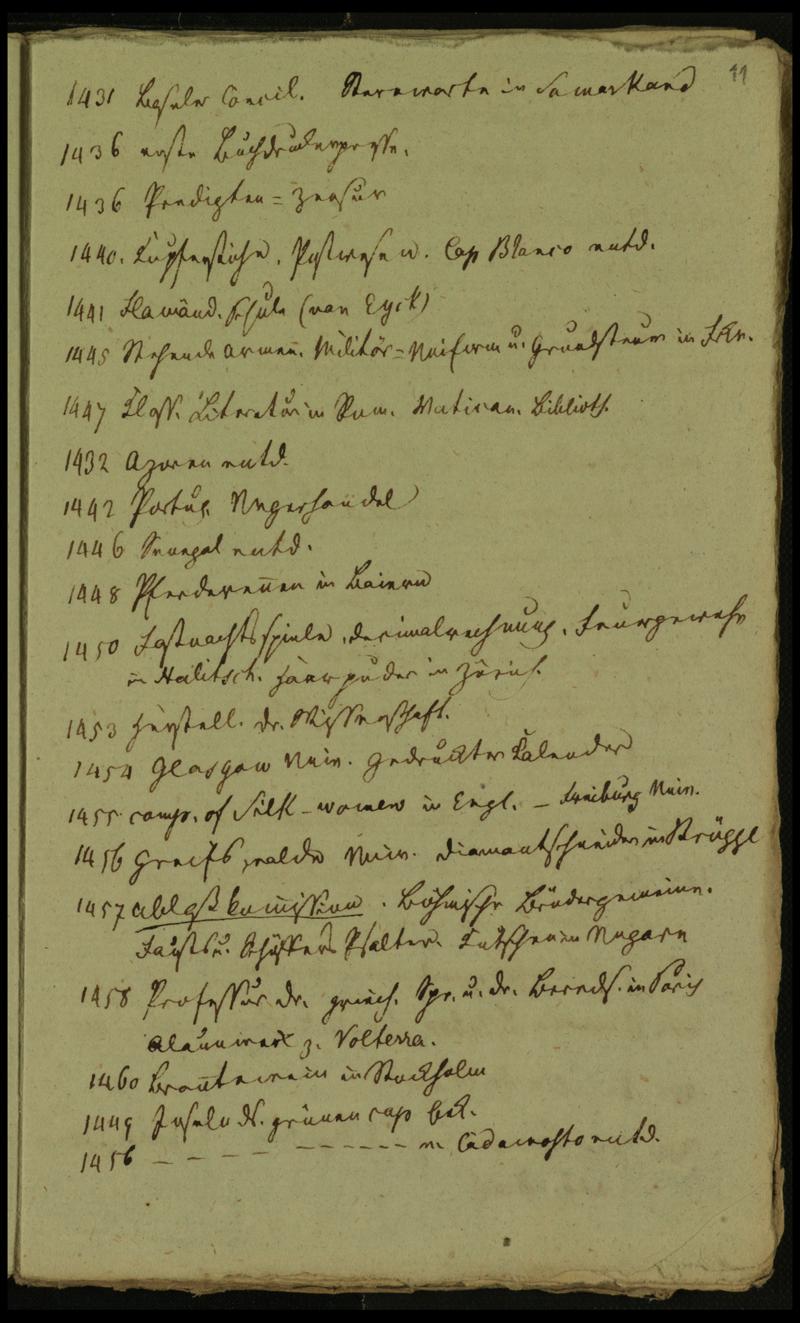 11
1431 Baseler Concil. Sternwarte in Samarkand
1436 erste Buchdrukerpresse.
1436 Predigten = Zensur
1440. Kupferstiche, Postwesen. Cap Blanco entd.
1441 Flamänd. Schule (van Eyck)
1445 Stehende Armen. Militär = Uniform u. Grundsteuer in Fkr.
1447 Klass. Literatur in Rom. Vatican. Biblioth.
1432 Azoren entd.
1442 Portug. Negerhandel
1446 Senegal entd.
1448 Pferderennen in Baiern
1450 Fastnachtsspiele, Decimalrechnung. Feurgewehr
in Halitsch. Haarpuder in Zürich.
1453 Herstell. dr. Wissenschaft.
1454 Glasgow Univ. Gedruckter Kalender
1455 comp. of Silk-women in Engl. – Freiburg Univ.
1456 Greifswalde Univ. Diamantschneider in Brüggl
1457 Ablasskomission. Böhmische Brüdergemeine.
Fausts u. Schöffers Psalter. Kutschen in Ungarn
1458 Professur dr. griech. Spr. u. dr. Bereds. in Paris
Alaunwerk z. Volterra.
1460 Brantewein in Stockholm
1449 Inseln ds. grünen Cap bek.
1456 – – – – – – – – – – v. Cadamosto entd.